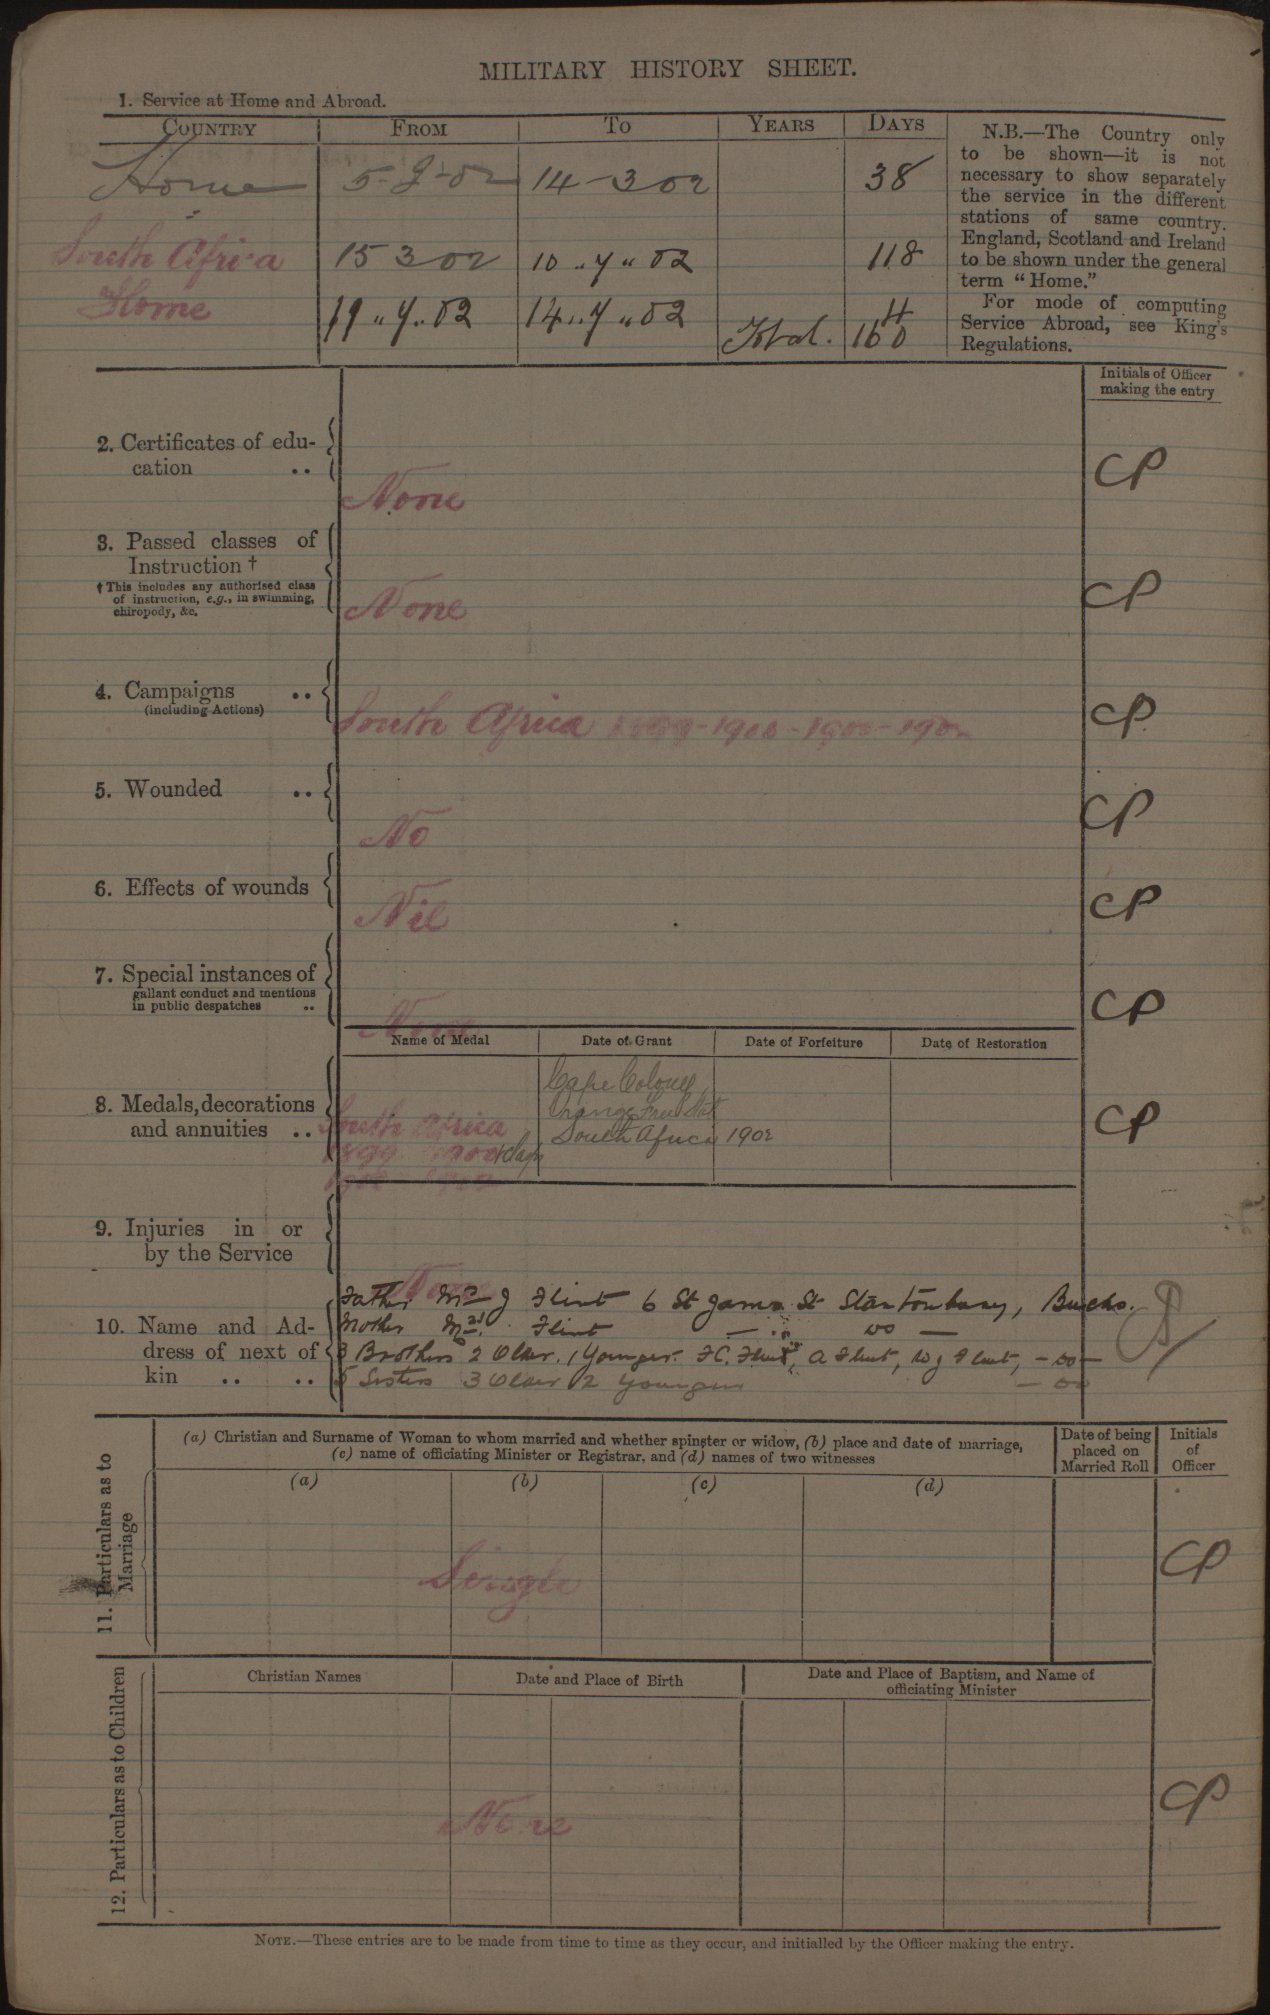 MILITARY HISTORY SHEET.
1. Service at Home and Abroad.
COUNTRY FROM TO YEARS DAYS
Home 5-2-02 14-3 02 38
South Africa 15 3 02 10 " 7 " 02 118
Home 11 " 7 " 02 14 " 7 " 02 4
Total. 160
N.B.—The Country only
to be shown—it is not
necessary to show separately
the service in the different
stations of same country.
England, Scotland and Ireland
to be shown under the general
term "Home."
For mode of computing
Service Abroad, see King's
Regulations.
Initials of Officer
making the entry
2. Certificates of edu-
cation ..
None CP
3. Passed classes of
Instruction †
† This includes any authorised class
of instruction, e.g., in swimming,
chiropody, &c.
None CP
4. Campaigns ..
(including Actions)
South Africa 1899-1900-1901-1902 CP
5. Wounded ..
No CP
6. Effects of wounds
Nil CP
7. Special instances of
gallant conduct and mentions
in public despatches ..
None CP
Name of Medal Date of Grant Date of Forfeiture Date of Restoration
8. Medals, decorations
and annuities ..
South Africa
Cape Colony
Orange Free State
South Africa 1902
CP
9. Injuries in or
by the Service
None
10. Name and Ad-
dress of next of
kin .. ..
Father Mr J Flint 6 St James St Stantonbury, Bucks.
Mother Mrs. Flint — " do —
3 Brothers 2 Older. 1 Younger. F.C. Flint, A Flint, W J Flint, — do —
5 Sisters 3 Older 2 Younger — do
11. Particulars as to
Marriage
(a) Christian and Surname of Woman to whom married and whether spinster or widow, (b) place and date of marriage,
(c) name of officiating Minister or Registrar, and (d) names of two witnesses
Date of being
placed on
Married Roll
Initials
of
Officer
(a) (b) (c) (d)
Single CP
12. Particulars as to Children
Christian Names Date and Place of Birth Date and Place of Baptism, and Name of
officiating Minister
None CP
NOTE.—These entries are to be made from time to time as they occur, and initialled by the Officer making the entry.